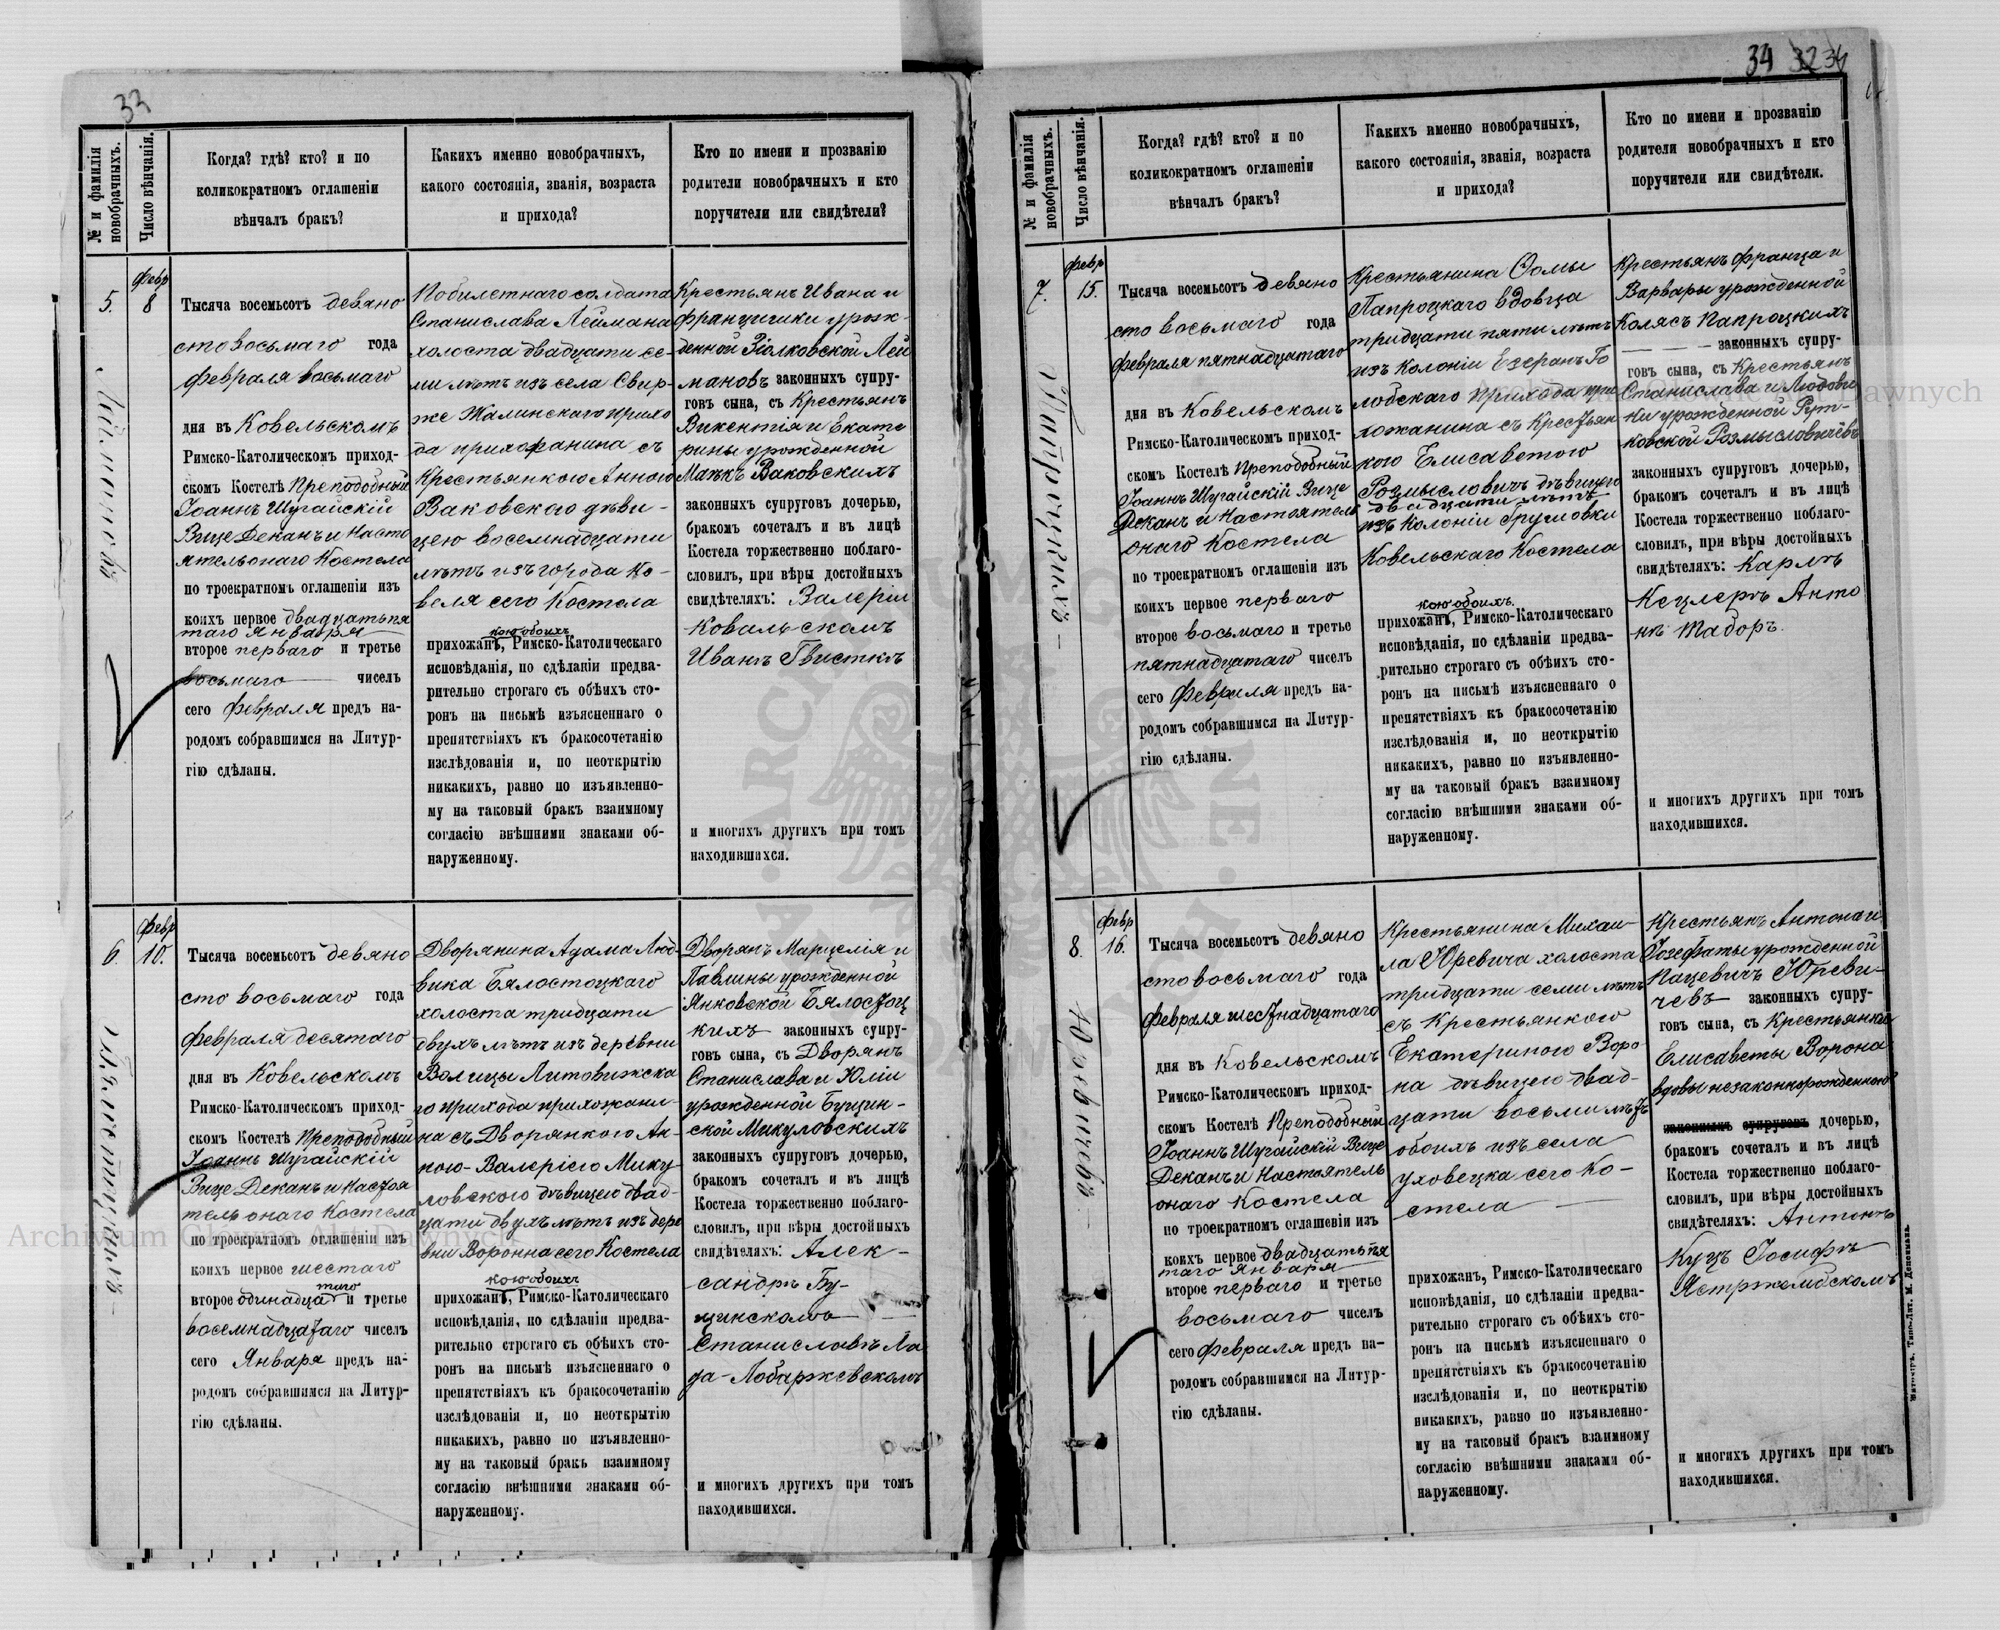 33
№ и фамилія новобрачныхъ.
Число вѣнчанія.
Когда? гдѣ? кто? и по
коликократномъ оглашеніи
вѣнчалъ бракъ?
Какихъ именно новобрачныхъ,
какого состоянія, званія, возраста
и прихода?
Кто по имени и прозванію
родители новобрачныхъ и кто
поручители или свидѣтели?
5.
Февр
8
Тысяча восемьсотъ девяно
сто восьмаго года
февраля восьмаго
дня въ Ковельскомъ
Римско-Католическомъ приход-
скомъ Костелѣ Преподобный
Іоаннъ Шугайскій
Вице Деканъ и Насто
ятель онаго Костела
по троекратномъ оглашеніи изъ
коихъ первое двадцать пя
таго Января
второе перваго и третье
восьмаго чиселъ
сего февраля предъ на-
родомъ собравшимся на Литур-
гію сдѣланы.
По билетнаго солдата
Станислава Леймана
холоста двадцати се-
ми лѣтъ изъ села Свир-
же Жалинскаго прихо
да прихожанина съ
Крестьянкою Анною
Ваковскою дѣви-
цею восемнадцати
лѣтъ изъ города Ко-
веля сего Костела
кою обоихъ
прихожанъ, Римско-Католическаго
исповѣданія, по сдѣланіи предва-
рительно строгаго съ обѣихъ сто-
ронъ на письмѣ изъясненнаго о
препятствіяхъ къ бракосочетанію
изслѣдованія и, по неоткрытію
никакихъ, равно по изъявленно-
му на таковый бракъ взаимному
согласію внѣшними знаками об-
наруженному.
Крестьянъ Ивана и
Францишки урож-
денной Зіолковской Лей
мановъ законныхъ супру-
говъ сына, съ Крестьянъ
Викентія и Екате
рины урожденной
Мазкъ Ваковскихъ
законныхъ супруговъ дочерью,
бракомъ сочеталъ и въ лицѣ
Костела торжественно поблаго-
словилъ, при вѣры достойныхъ
свидѣтеляхъ: Валеріи
Ковальскомъ
Иванъ Гвисткъ
и многихъ другихъ при томъ
находившихся.
6.
Февр
10.
Бялостоцкихъ
Тысяча восемьсотъ девяно
сто восьмаго года
февраля десятаго
дня въ Ковельскомъ
Римско-Католическомъ приход-
скомъ Костелѣ Преподобный
Іоаннъ Шугайскій
Вице Деканъ и Настоя
тель онаго Костела
по троекратномъ оглашеніи изъ
коихъ первое шестаго
второе одинадцатаго и третье
восемнадцатаго чиселъ
сего Января предъ на-
родомъ собравшимся на Литур-
гію сдѣланы.
Дворянина Адама Люд-
вика Бялостоцкаго
холоста тридцати
двухъ лѣтъ изъ деревни
Волицы Литовижска
го прихода прихожани-
на съ Дворянкою Ан-
ною-Валеріею Мику
ловскою дѣвицею двад-
цати двухъ лѣтъ изъ дере
вни Воронна сего Костела
кою обоихъ
прихожанъ, Римско-Католическаго
исповѣданія, по сдѣланіи предва-
рительно строгаго съ обѣихъ сто-
ронъ на письмѣ изъясненнаго о
препятствіяхъ къ бракосочетанію
изслѣдованія и, по неоткрытію
никакихъ, равно по изъявленно-
му на таковый бракъ взаимному
согласію внѣшними знаками об-
наруженному.
Дворянъ Марцелія и
Павлины урожденной
Янковской Бялостоц
кихъ законныхъ супру-
говъ сына, съ Дворянъ
Станислава и Юліи
урожденной Бущин-
ской Микуловскихъ
законныхъ супруговъ дочерью,
бракомъ сочеталъ и въ лицѣ
Костела торжественно поблаго-
словилъ, при вѣры достойныхъ
свидѣтеляхъ: Алек-
сандръ Бу-
щинскомъ
Станиславъ Ла
да-Лобаржевскомъ
и многихъ другихъ при томъ
находившихся.
34 32 34
№ и фамилія новобрачныхъ.
Число вѣнчанія.
Когда? гдѣ? кто? и по
коликократномъ оглашеніи
вѣнчалъ бракъ?
Какихъ именно новобрачныхъ,
какого состоянія, званія, возраста
и прихода?
Кто по имени и прозванію
родители новобрачныхъ и кто
поручители или свидѣтели.
7.
Февр
15.
Папроцкихъ
Тысяча восемьсотъ девяно
сто восьмаго года
февраля пятнадцатаго
дня въ Ковельскомъ
Римско-Католическомъ приход-
скомъ Костелѣ Преподобный
Іоаннъ Шугайскій Вице
Деканъ и Настоятель
онаго Костела
по троекратномъ оглашеніи изъ
коихъ первое перваго
второе восьмаго и третье
пятнадцатаго чиселъ
сего Февраля предъ на-
родомъ собравшимся на Литур-
гію сдѣланы.
Крестьянина Ѳомы
Папроцкаго вдовца
тридцати пяти лѣтъ
изъ Колоніи Езеранъ Го
лобскаго прихода при
хожанина съ Крестьян
кою Елисаветою
Розмысловичъ дѣвицею
двадцати лѣтъ
изъ Колоніи Грушовки
Ковельскаго Костела
кою обоихъ.
прихожанъ, Римско-Католическаго
исповѣданія, по сдѣланіи предва-
рительно строгаго съ обѣихъ сто-
ронъ на письмѣ изъясненнаго о
препятствіяхъ къ бракосочетанію
изслѣдованія и, по неоткрытію
никакихъ, равно по изъявленно-
му на таковый бракъ взаимному
согласію внѣшними знаками об-
наруженному.
Крестьянъ Франца и
Варвары урожденной
Колясъ Папроцкихъ
законныхъ супру-
говъ сына, съ Крестьянъ
Станислава и Людови
ки урожденной Рут-
ковской Розмысловичевъ
законныхъ супруговъ дочерью,
бракомъ сочеталъ и въ лицѣ
Костела торжественно поблаго-
словилъ, при вѣры достойныхъ
свидѣтеляхъ: Карлъ
Кецлеръ Анто
нѣ Таборъ.
и многихъ другихъ при томъ
находившихся.
8.
Февр
16.
Юревичевъ
Тысяча восемьсотъ девяно
сто восьмаго года
февраля шестнадцатаго
дня въ Ковельскомъ
Римско-Католическомъ приход-
скомъ Костелѣ Преподобный
Іоаннъ Шугайскій Вице
Деканъ и Настоятель
онаго Костела
по троекратномъ оглашеніи изъ
коихъ первое двадцать пя
таго Января
второе перваго и третье
восьмаго чиселъ
сего февраля предъ на-
родомъ собравшимся на Литур-
гію сдѣланы.
Крестьянина Михаи-
ла Юревича холоста
тридцати семи лѣтъ
съ Крестьянкою
Екатериною Воро
на дѣвицею двад-
цати восьми лѣтъ
обоихъ изъ села
Уховецка сего Ко-
стела
прихожан, Римско-Католическаго
исповѣданія, по сдѣланіи предва-
рительно строгаго съ обѣихъ сто-
ронъ на письмѣ изъясненнаго о
препятствіяхъ къ бракосочетанію
изслѣдованія и, по неоткрытію
никакихъ, равно по изъявленно-
му на таковый бракъ взаимному
согласію внѣшними знаками об-
наруженному.
Крестьянъ Антона и
Іозефаты урожденной
Пацевичъ Юреви-
чевъ законныхъ супру-
говъ сына, съ Крестьянки
Елисаветы Ворона
вдовы незаконнорожденною
законныхъ супруговъ дочерью,
бракомъ сочеталъ и въ лицѣ
Костела торжественно поблаго-
словилъ, при вѣры достойныхъ
свидѣтеляхъ: Антонъ
Куцъ Іосифъ
Ястржембскомъ
и многихъ другихъ при томъ
находившихся.
Житоміръ. Типо-Лит. М. Дененмана.
Archiwum Główne Akt Dawnych